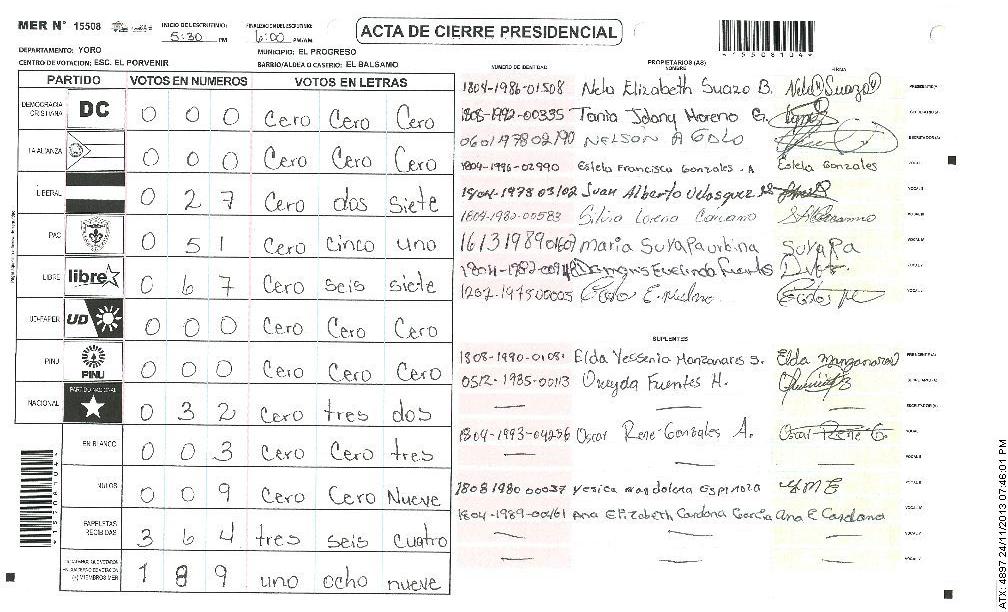 MER N° 15508 INICIO DE ESCRUTINIO: 5:30 PM FINALIZACION ESCRUTINIO: 6:00 PM/AM
ACTA DE CIERRE PRESIDENCIAL
DEPARTAMENTO: YORO MUNICIPIO: EL PROGRESO
CENTRO DE VOTACION: ESC. EL PORVENIR BARRIO/ALDEA O CASERIO: EL BALSAMO
PARTIDO VOTOS EN NUMEROS VOTOS EN LETRAS
DEMOCRACIA CRISTIANA DC 0 0 0 Cero Cero Cero
LA ALIANZA 0 0 0 Cero Cero Cero
LIBERAL 0 2 7 Cero dos siete
PAC 0 5 1 Cero cinco uno
LIBRE libre 0 6 7 Cero seis siete
UD-FAPER UD 0 0 0 Cero Cero Cero
PINU PINU 0 0 0 Cero Cero Cero
NACIONAL PARTIDO NACIONAL 0 3 2 Cero tres dos
EN BLANCO 0 0 3 Cero Cero tres
NULOS 0 0 9 Cero Cero Nueve
PAPELETAS RECIBIDAS 3 6 4 tres seis cuatro
(+) MIEMBROS MER 1 8 9 uno ocho nueve
NUMERO DE IDENTIDAD PROPIETARIOS (AS) NOMBRE FIRMA
1804-1986-01508 Nelo Elizabeth Suazo B. Nelo Suazo
1808-1992-00335 Tania Jdany Moreno G.
0601197802790 NELSON A
1804-1996-02990 Estela Francisca Gonzales . A Estela Gonzales
1804-1978 03102 Juan Alberto Velasquez
1804-1980-00583 Silvia Lorena
16131989 01607 maria Suyapa urbina Suyapa
1804-1982- Evelinda Fuentes
1202-1975 00005
SUPLENTES
1808-1990-0108 Elda Yessenia Manzanares S. Elda Manzanares
0512-1985-00113 Oneyda Fuentes H.
1804-1993-04236 Oscar Rene Gonzales A. Oscar Rene G.
1808 1980 00037 Yesica magdalena Espinoza
1804-1989-00461 Ana Elizabeth Cardona Garcia Ana E Cardona
ATX: 4897 24/11/2013 07:46:01 PM